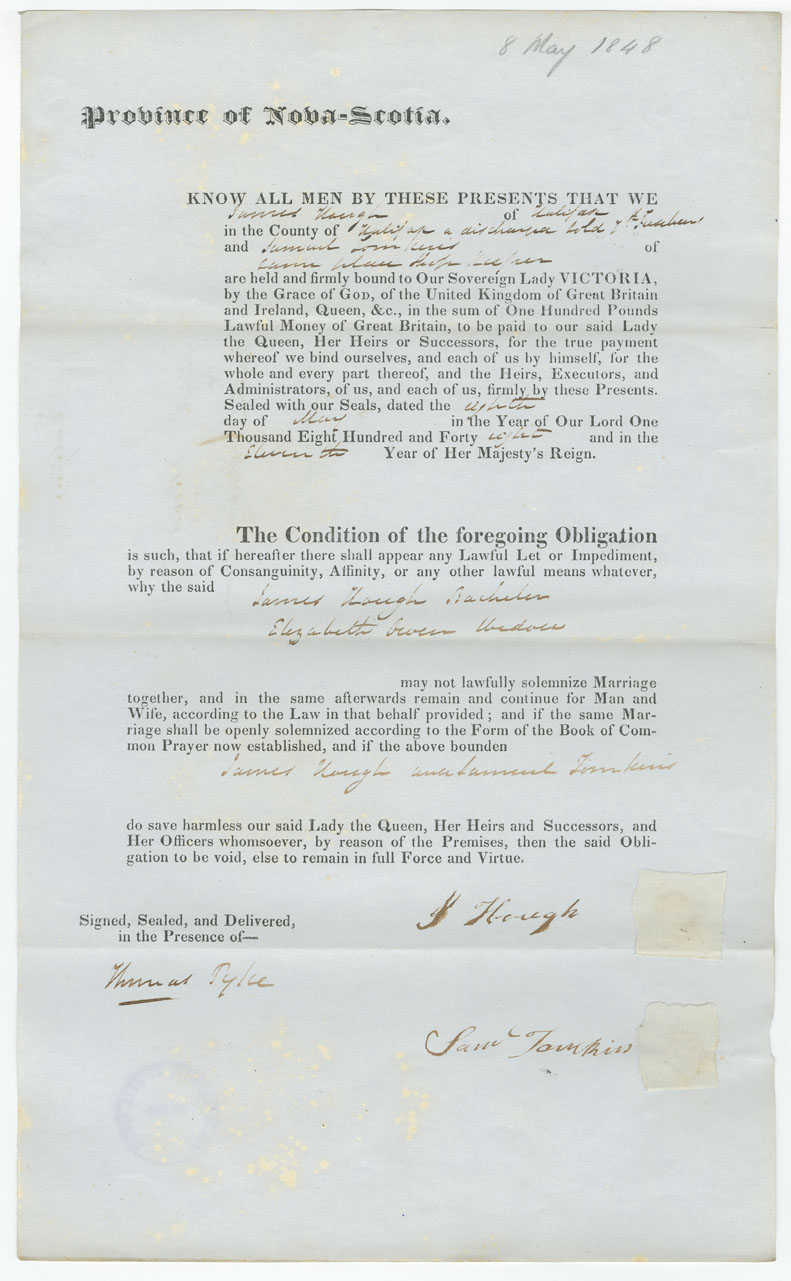 8 May 1848
Province of Nova-Scotia.
KNOW ALL MEN BY THESE PRESENTS THAT WE
James Hough of Halifax
in the County of Halifax a discharged Sold 7th Fusiliers
and Samuel Tomkins of
same place Shop Keeper
are held and firmly bound to Our Sovereign Lady VICTORIA,
by the Grace of GOD, of the United Kingdom of Great Britain
and Ireland, Queen, &c., in the sum of One Hundred Pounds
Lawful Money of Great Britain, to be paid to our said Lady
the Queen, Her Heirs or Successors, for the true payment
whereof we bind ourselves, and each of us by himself, for the
whole and every part thereof, and the Heirs, Executors, and
Administrators, of us, and each of us, firmly by these Presents.
Sealed with our Seals, dated the eighth
day of May in the Year of Our Lord One
Thousand Eight Hundred and Forty eight and in the
Eleventh Year of Her Majesty's Reign.
The Condition of the foregoing Obligation
is such, that if hereafter there shall appear any Lawful Let or Impediment,
by reason of Consanguinity, Affinity, or any other lawful means whatever,
why the said James Hough Bachelor
Elizabeth Owen Widow
may not lawfully solemnize Marriage
together, and in the same afterwards remain and continue for Man and
Wife, according to the Law in that behalf provided ; and if the same Mar-
riage shall be openly solemnized according to the Form of the Book of Com-
mon Prayer now established, and if the above bounden
James Hough and Samuel Tomkins
do save harmless our said Lady the Queen, Her Heirs and Successors, and
Her Officers whomsoever, by reason of the Premises, then the said Obli-
gation to be void, else to remain in full Force and Virtue.
Signed, Sealed, and Delivered,
in the Presence of—
J Hough
Thomas Pyke
Saml Tomkins